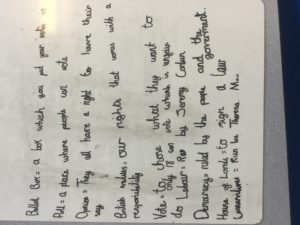 Ballot Box = a box which you put your votes in
Poll = a place where people can vote
Opinion = They all have a right to have their
say
British values = our rights that comes with a
responsibility
Vote = to chose what they want to
do only 18 can vote which is unfair
Labour = Run by Jeremy Corbin
Democracy = ruled by the people and the
government.
House of Lords = to sign a law
Conservatives = Run by Theresa M...